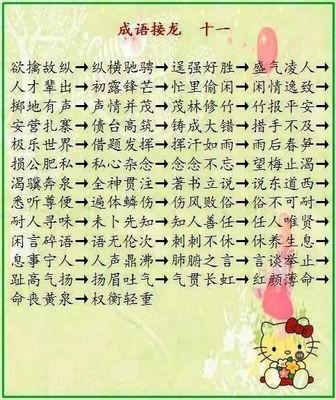 成语接龙 十一
欲擒故纵→纵横驰骋→逞强好胜→盛气凌人→
人才辈出→初露锋芒→忙里偷闲→闲情逸致→
掷地有声→声情并茂→茂林修竹→竹报平安→
安营扎寨→债台高筑→铸成大错→措手不及→
极乐世界→借题发挥→挥汗如雨→雨后春笋→
损公肥私→私心杂念→念念不忘→望梅止渴→
渴骥奔泉→全神贯注→著书立说→说东道西→
悉听尊便→遍体鳞伤→伤风败俗→俗不可耐→
耐人寻味→未卜先知→知人善任→任人唯贤→
闲言碎语→语无伦次→刺刺不休→休养生息→
息事宁人→人声鼎沸→肺腑之言→言谈举止→
趾高气扬→扬眉吐气→气贯长虹→红颜薄命→
命丧黄泉→权衡轻重